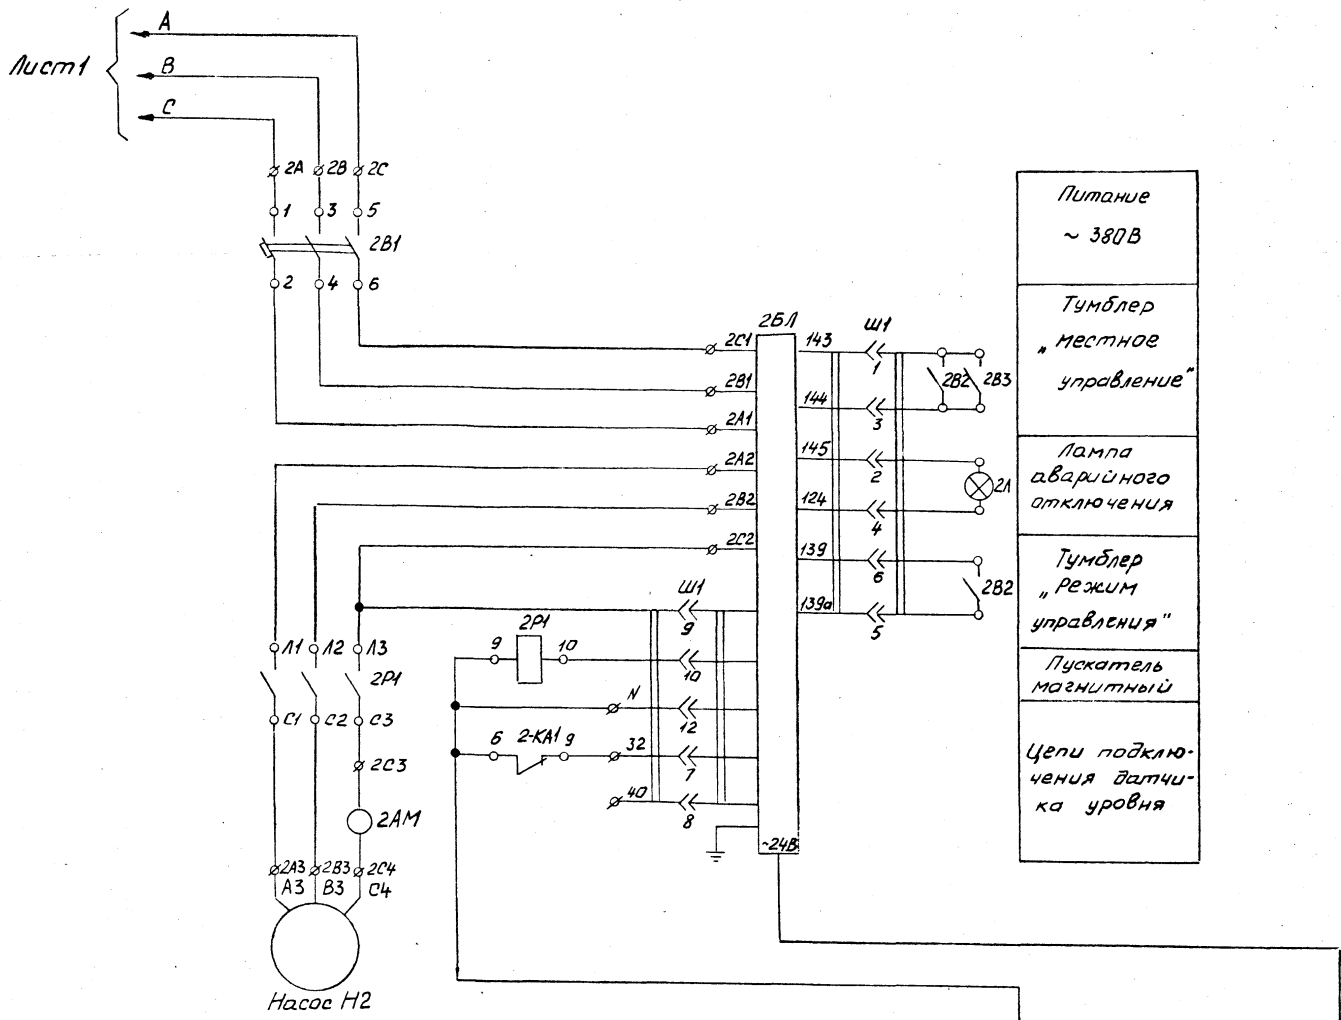 А
Лист1
В
С
2А 2В 2С
1 3 5
2В1
2 4 6
2БЛ
2С1
2В1
2А1
2А2
2В2
2С2
143
Ш1
1
2В2 2В3
144
3
145
2
2Л
124
4
139
6
2В2
139а
5
Ш1
9
2Р1
9 10
10
N
12
6 2-КА1 9 32
7
40
8
~24В
Л1 Л2 Л3
2Р1
С1 С2 С3
2С3
2АМ
2А3 2В3 2С4
А3 В3 С4
Насос Н2
Питание
~ 380В
Тумблер
„местное
управление"
Лампа
аварийного
отключения
Тумблер
„Режим
управления"
Пускатель
магнитный
Цепи подклю-
чения датчи-
ка уровня